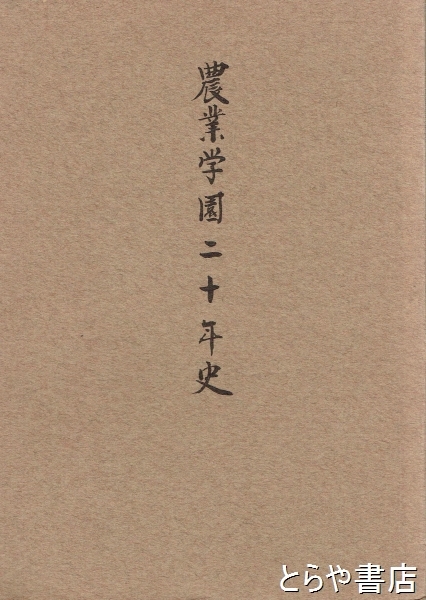 農業学園二十年史
とらや書店